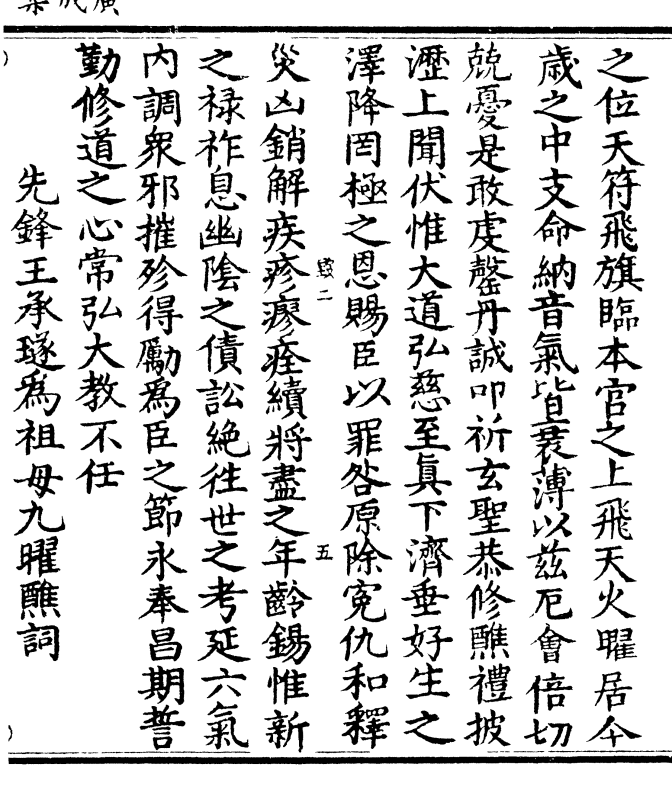 之位天符飛旗臨本宫之上飛天火曜居今
歳之中支命納音氣皆衰薄以兹厄會倍切
兢憂是敢虔罄丹誠叩祈玄聖恭修醮禮披
瀝上聞伏惟大道弘慈至眞下濟垂好生之
澤降罔極之恩賜臣以罪咎原除寃仇和釋
二
五
災凶銷解疾疹瘳痊續將盡之年齡錫惟新
之禄祚息幽陰之債訟絶徃世之考延六氣
内調衆邪摧殄得勵為臣之節永奉昌期誓
勤修道之心常弘大教不任
先鋒王承璲為祖母九曜醮詞